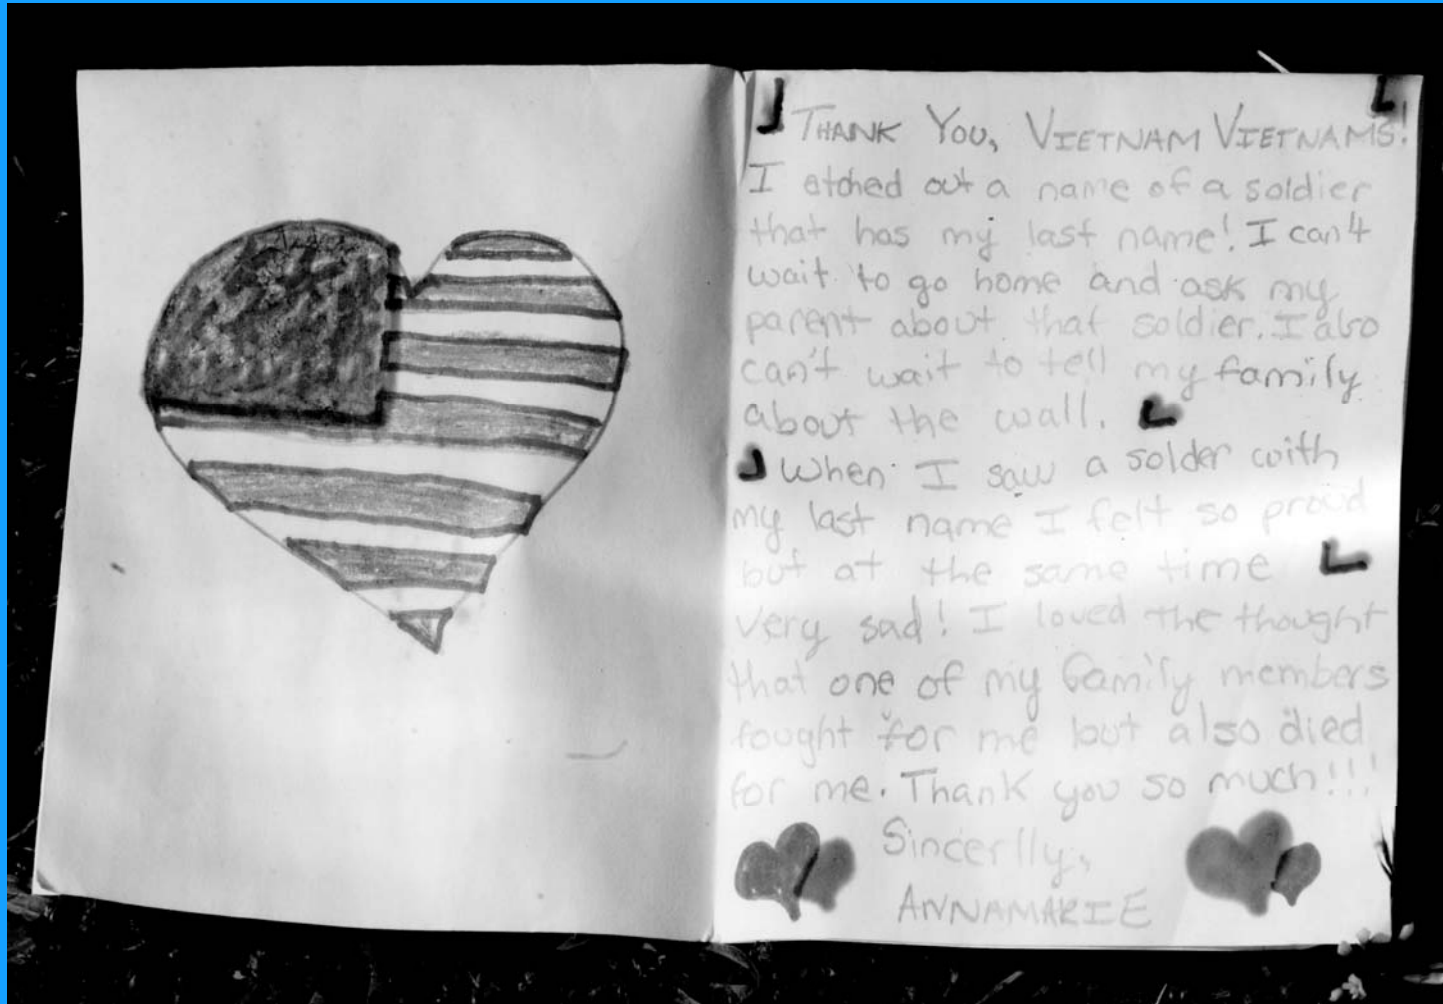 THANK YOU, VIETNAM VIETNAMS!
I etched out a name of a soldier
that has my last name! I can't
wait to go home and ask my
parent about that soldier. I also
can't wait to tell my family
about the wall.
When I saw a solder with
my last name I felt so proud
but at the same time
very sad! I loved the thought
that one of my family members
fought for me but also died
for me. Thank you so much!!!
Sincerlly,
ANNAMARIE